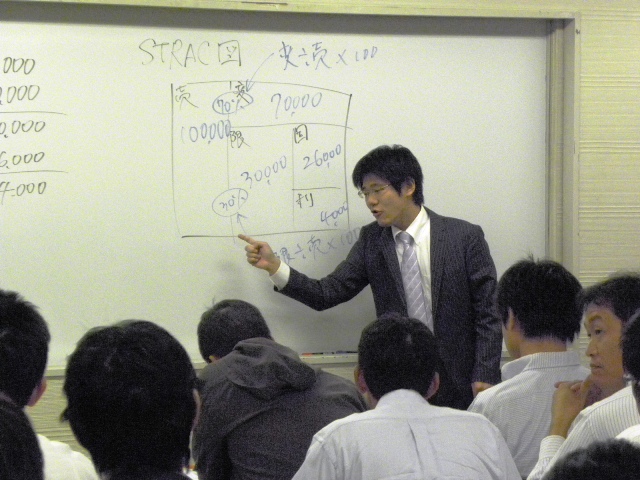 000
,000
0,000
6.000
4.000
STRAC図
変÷売×100
売
70%
変
70,000
100,000
限
固
30,000
26,000
30%
利
4,000
限÷売×100